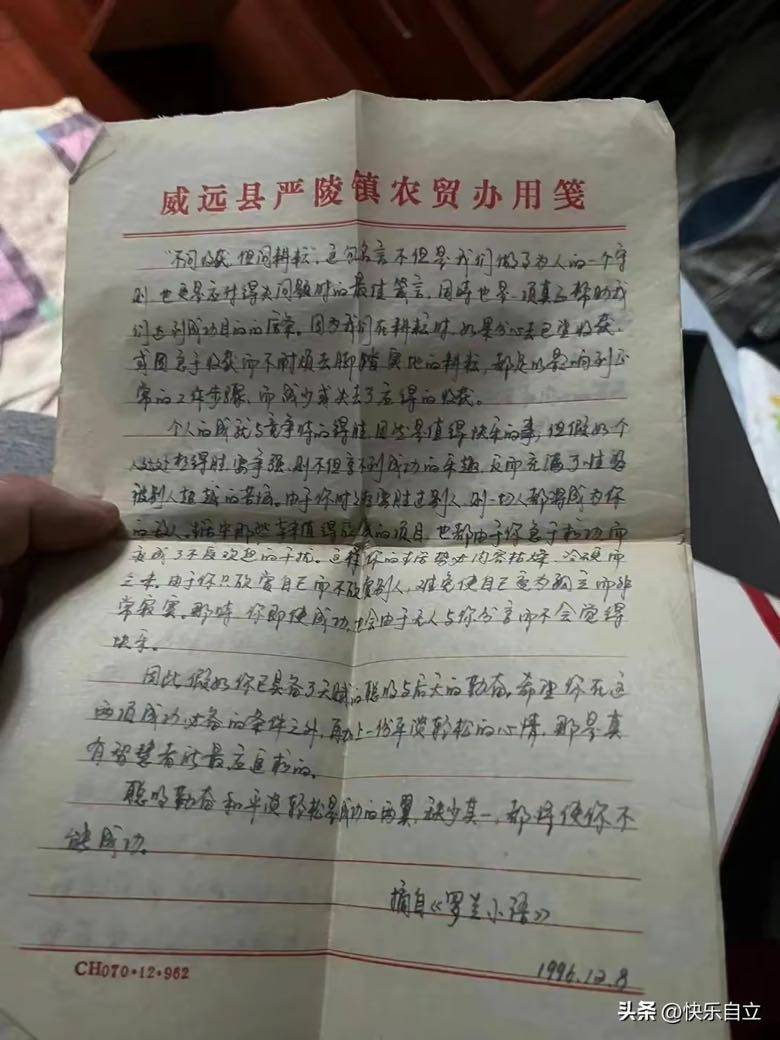 威远县严陵镇农贸办用笺
“不问收获 但问耕耘”，这句名言不但是我们做事为人的一个守
则，也更是应付得失问题时的最佳箴言，同时也是一项真正帮助我
们达到成功目的的信条。因为我们在耕耘时，如果分心去巴望收获，
或因急于收获而不耐烦去脚踏实地的耕耘，都足以影响到正
常的工作步骤，而减少或失去了应得的收获。
个人的成就与竞争时的得胜，固然是值得快乐的事，但假如个
人处处想得胜、要争强，则不但享不到成功的乐趣，反而充满了时
被别人超越的苦恼。由于你时时要胜过别人，则一切人都将成为你
的敌人，生活中那些幸值得的项目，也都由于你急于求功而
变成了不受欢迎的干扰。这样，你的生活势必内容枯燥、冷硬而
乏味。由于你只欣赏自己而不欣赏别人，难免使自己变为孤立而非
常寂寞。那时，你即使成功，也会由于无人与你分享而不会觉得
快乐。
因此，假如你已具备了天赋的聪明与后天的勤奋，希望你在这
两项成功必备的条件之外，再加上一份平淡轻松的心情，那是真
有智慧者所最应追求的。
聪明勤奋和平淡轻松是成功的两翼，缺少其一，都将使你不
能成功。
摘自《罗兰小语》
1996.12.8
CH070·12·962
头条 @快乐自立